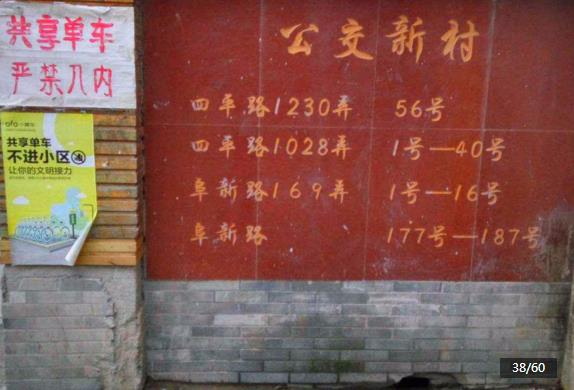 共享单车
严禁入内
ofo 小黄车
共享单车
不进小区
让你的文明接力
公交新村
四平路1230弄 56号
四平路1028弄 1号—40号
阜新路169弄 1号—16号
阜新路 177号—187号
38/60